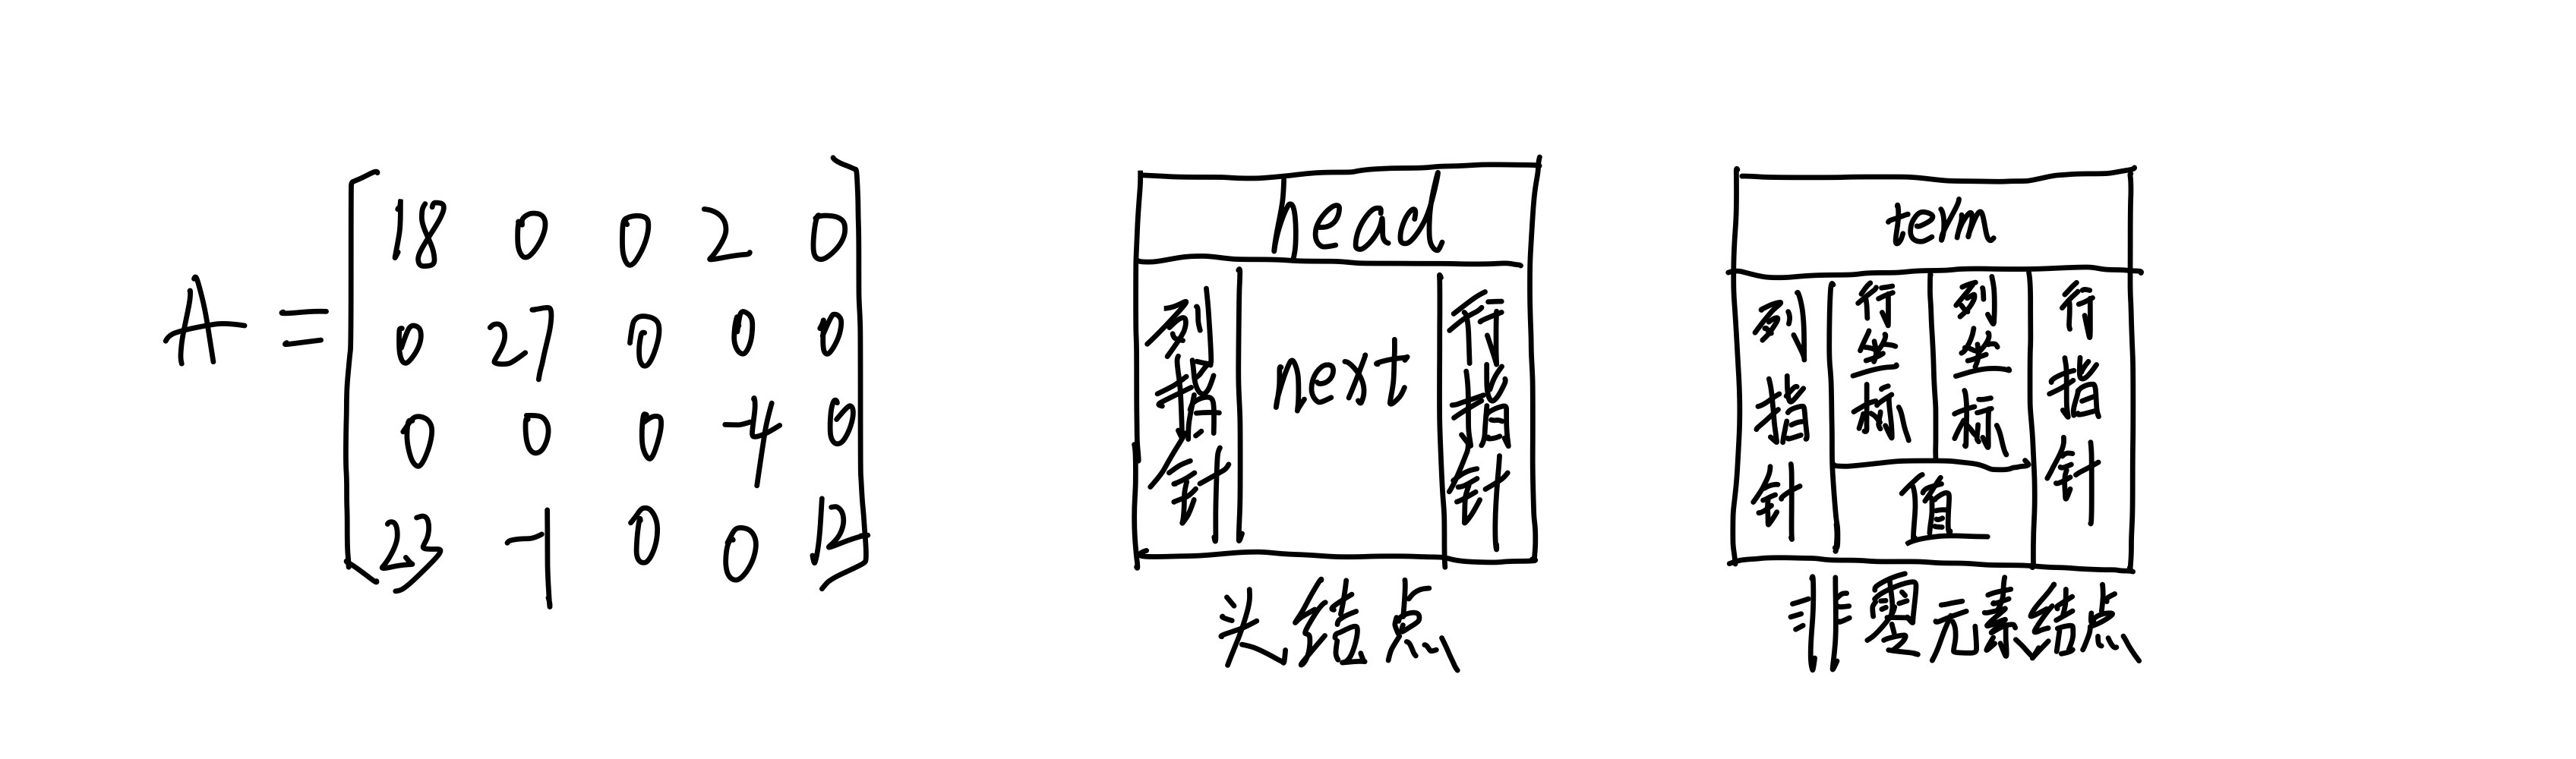 A = [18 0 0 2 0
0 27 0 0 0
0 0 0 -4 0
23 -1 0 0 12]
head
列指针 next 行指针
头结点
term
列指针 行坐标 列坐标 行指针
值
非零元素结点